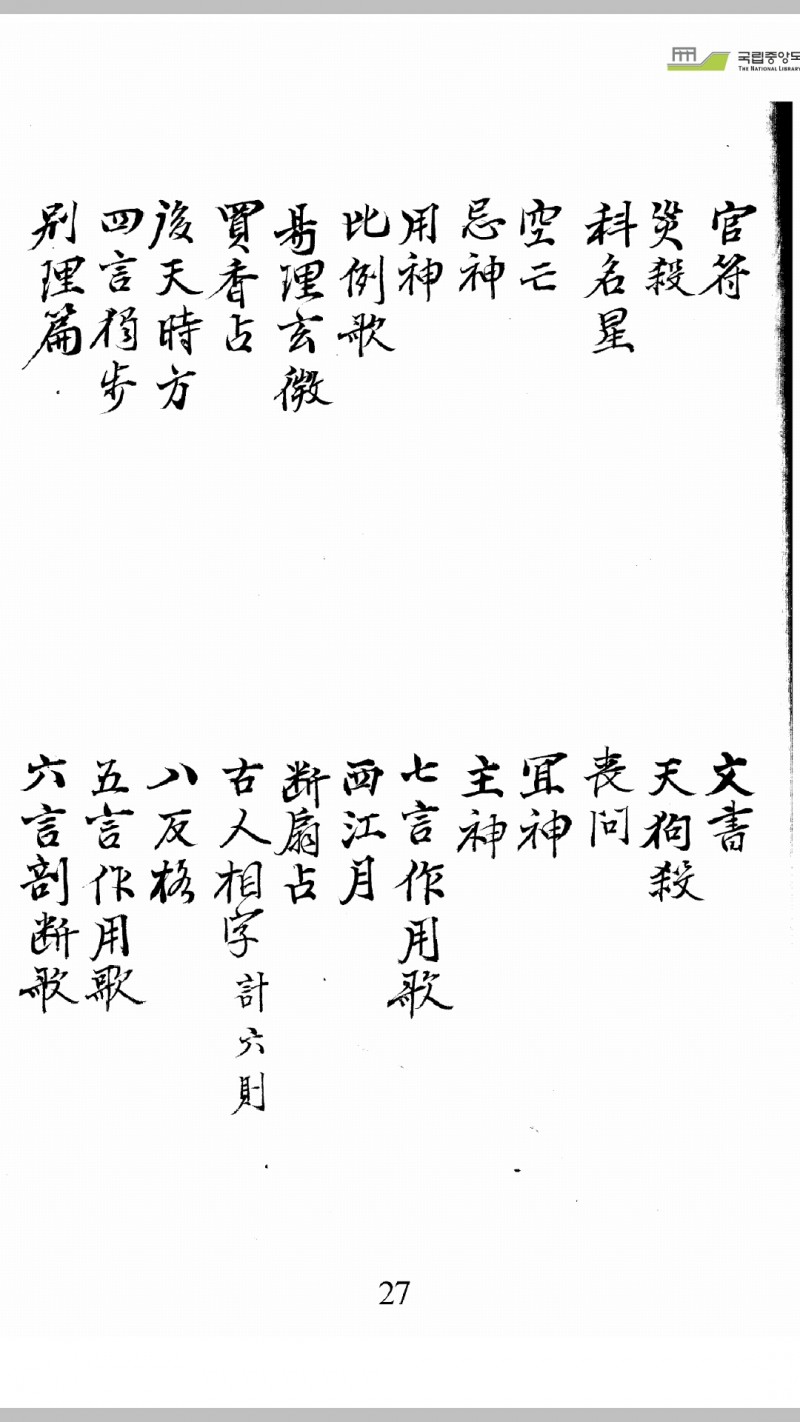 국립중앙도
THE NATIONAL LIBRARY
官符
文書
災殺
天狗殺
科名星
喪問
空亡
宜神
忌神
主神
用神
七言作用歌
比例歌
西江月
易理玄微
断扇占
買香占
古人相字計六則
後天時方
八反格
四言獨步
五言作用歌
別理篇
六言剖断歌
27